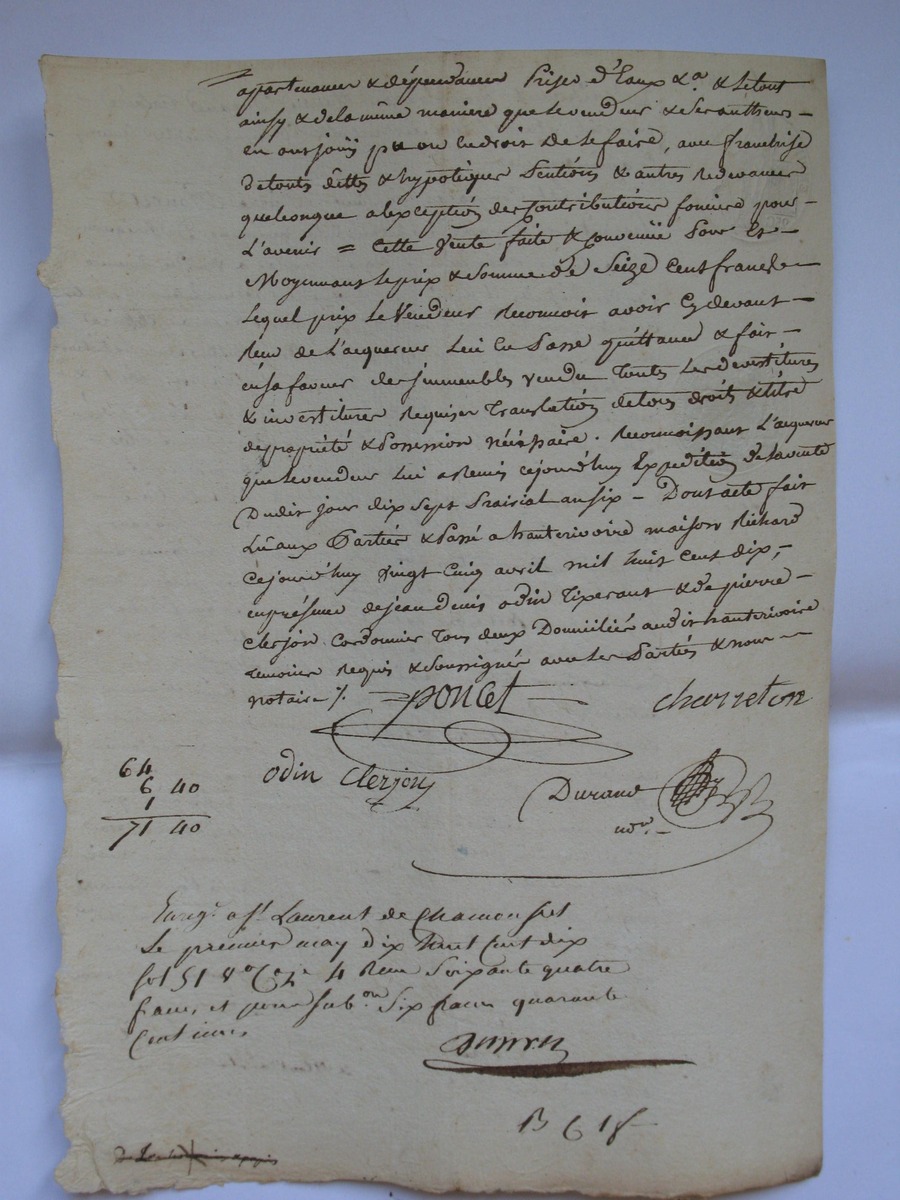 apartenances & dépendances Prises d'Eaux &a. & le tout
ainsy & de la même maniere que le vendeur & ses autheurs
en ont joüi ou eu droit de le faire, avec franchise
de touts dettes & hypoteques Pentions & autres Redevances
quelconque a l'exception des Contributions foncires pour
L'avenir = Cette Vente faite & Convenüe Pour Et
Moyennant le prix & Somme de Seize Cent francs
Lequel prix Le Vendeur Reconnoit avoir Cy devant
Reçu de L'acquereur Lui En Passe quittance & fait
en sa faveur des immeubles vendu Toutes Les devestitures
& investitures Requises Translation de tous droits & titre
de propriété & Possession nécéssaire. Reconnoissant L'acquereur
que le vendeur Lui a Remis cejourd'huy Expedition de la vente
Dudit jour dix Sept Prairial an six – Dont acte fait
Lû aux Parties & Passé a hauterivoire maison Richard
Cejourd'huy Vingt Cinq avril mil huit Cent dix,
en présence de jean denis odin Tixerant & de pierre
Clerjon Cordonnier Tous deux Domiciliés audit hauterivoire
Temoins Requis & Soussignés avec Les Parties & nous
notaire /.
poncet charreton
odin Clerjon Durand
nore.
64
6 40
1
71 40
Enregt. a St. Laurent de Chamousset
Le premier may dix huit Cent dix
fol 51 Vo Caze 4 Reçu Soixante quatre
francs et pour Subon Six francs quarante
Centimes
B 6 18